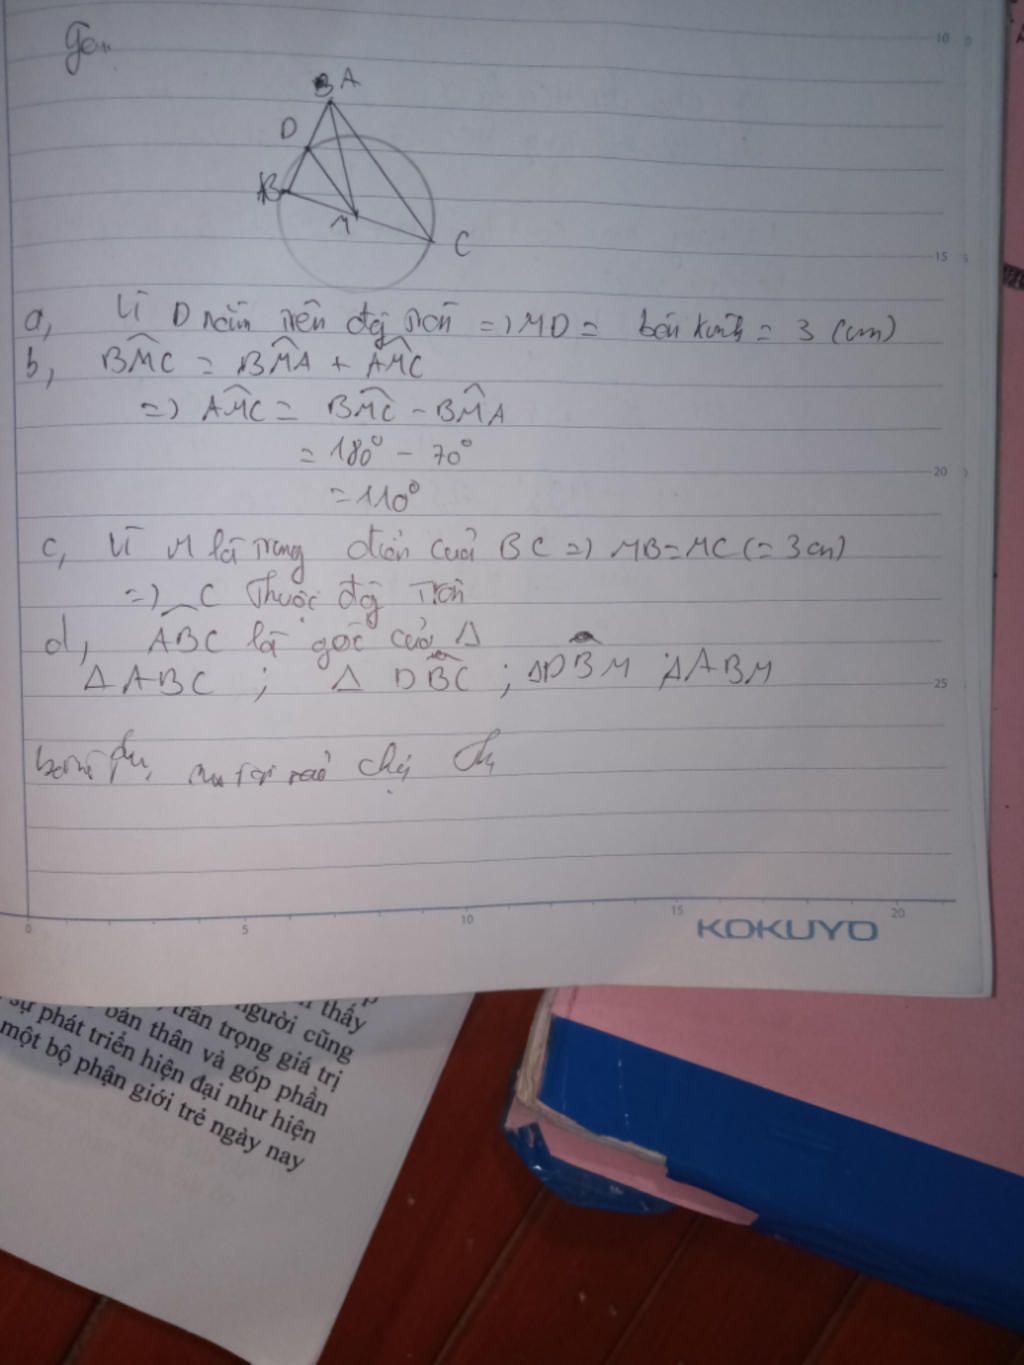 A
D
B
M
C
a, Vì D nằm trên đg tròn => MD = bán kính = 3 (cm)
b, BMC = BMA + AMC
=> AMC = BMC - BMA
= 180° - 70°
= 110°
c, Vì M là trung điểm của BC => MB = MC (= 3cm)
=> C thuộc đg tròn
d, ABC là góc của Δ
Δ ABC ; Δ DBC ; ΔDBM ; ΔABM
10
15
20
25
0 5 10 15 20
KOKUYO
thấy
người cũng
trân trọng giá trị
bản thân và góp phần
sự phát triển hiện đại như hiện
một bộ phận giới trẻ ngày nay